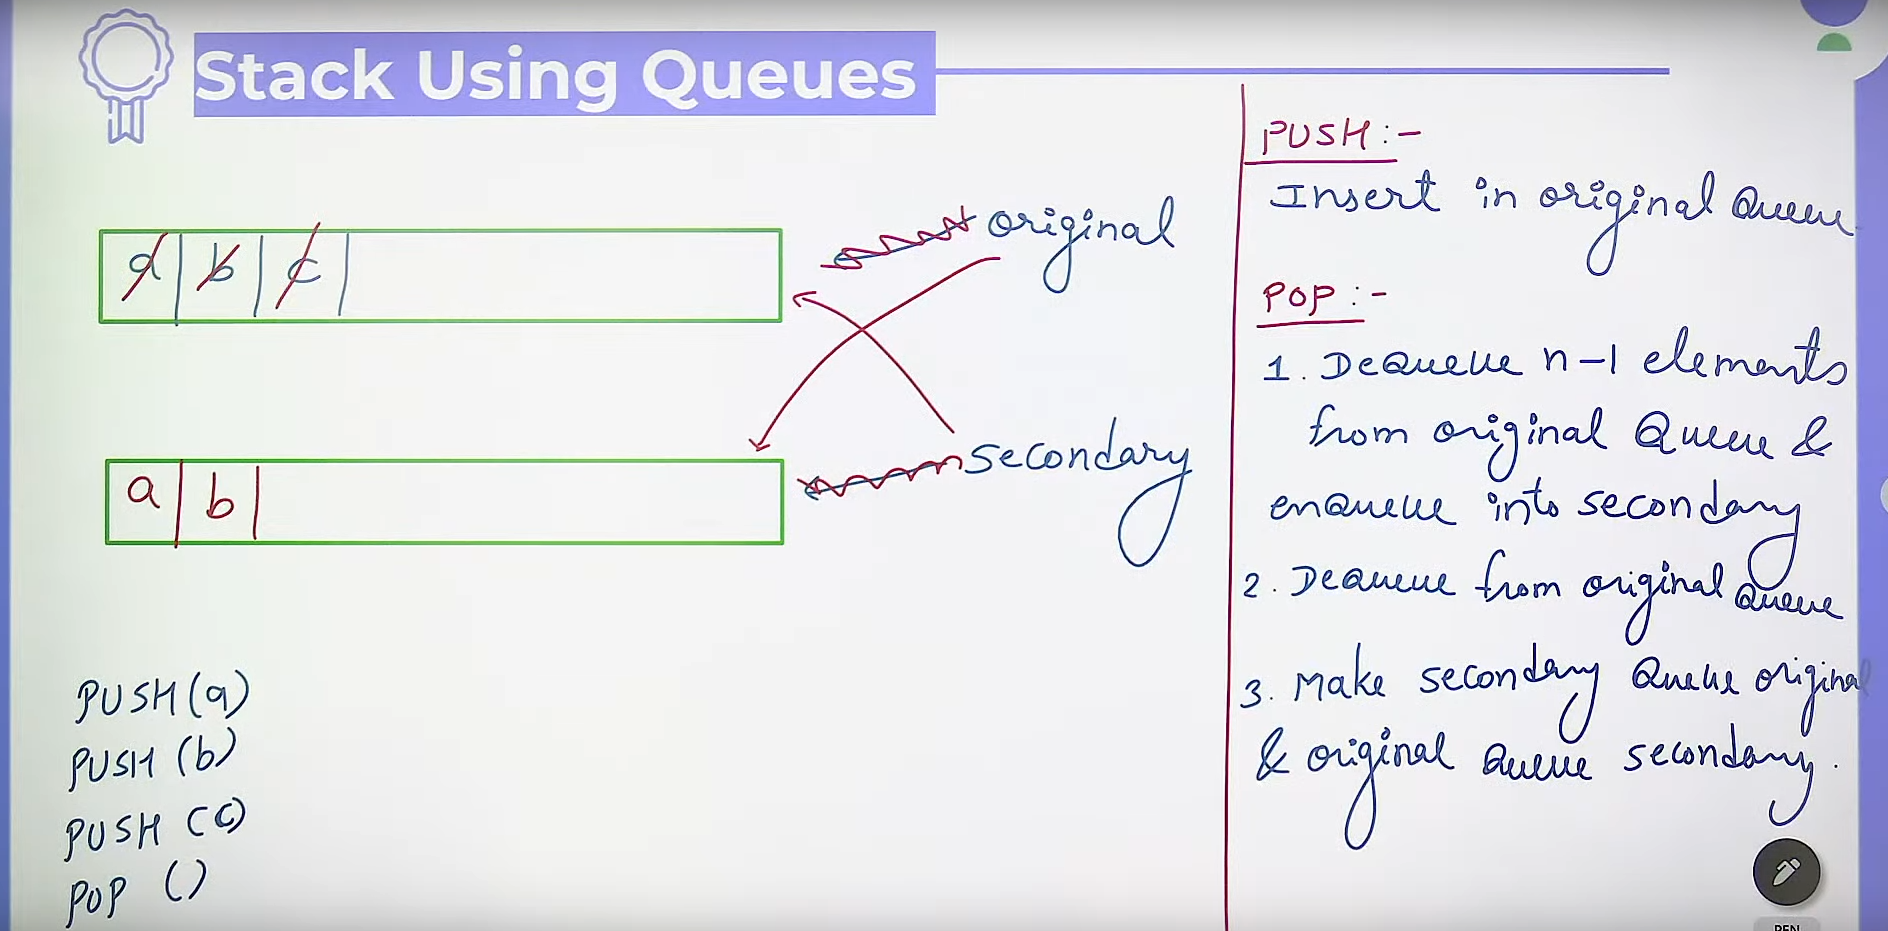 Stack Using Queues
a b c
original
a b
secondary
PUSH(a)
PUSH (b)
PUSH (c)
POP ()
PUSH:-
Insert in original Queue
POP:-
1. DeQueue n-1 elements
from original Queue &
enQueue into secondary
2. DeQueue from original Queue
3. Make secondary Queue original
& original Queue secondary.
PEN